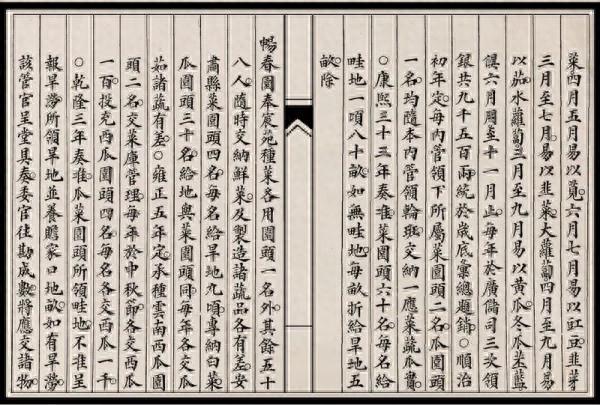 菜四月五月易以莧六月七月易以豇豆韭芽
三月至七月易以韭菜大蘿蔔四月至九月易
以茄水蘿蔔三月至九月易以黄瓜冬瓜苤藍
俱六月用至十一月止每年於廣儲司三次領
銀共九千五百兩統於歳底彙總題銷○順治
初年定每内管領下所屬菜園頭二名瓜園頭
一名均隨本内管領輪班交納一應菜蔬瓜實
○康熙三十三年奏准菜園頭六十名每名給
畦地一頃八十畝如無畦地每畝折給旱地五
畝除
暢春園奉宸苑種菜各用園頭一名外其餘五十
八人隨時交納鮮菜及製造諸蔬品各有差安
肅縣菜園頭四名每名給旱地九頃專納白菜
瓜園頭三十名給地與菜園頭同每年各交瓜
茄諸蔬有差○雍正五年定承種雲南西瓜園
頭二名交菓庫管理每年於中秋節各交西瓜
一百投充西瓜園頭四名每名各交西瓜一千
○乾隆三年奏准瓜菜園頭所領畦地不准呈
報旱澇所領旱地並養贍家口地畝如有旱澇
該管官呈堂具奏委官往勘成數將應交諸物